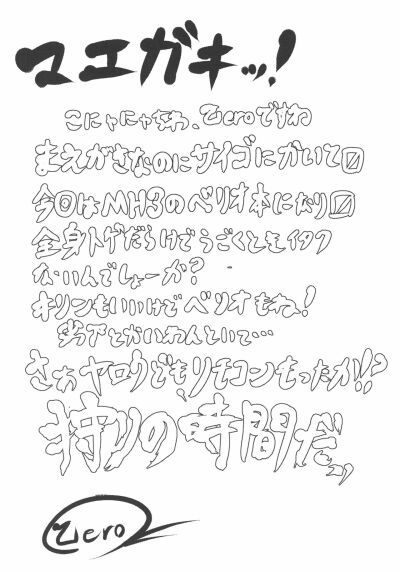 マエガキッ!
こにゃにゃちわ、Zeroですね
まえがきなのにサイゴにかいて〼
今回はMH3のベリオ本になり〼
全身トゲだらけでうごくとモイタク
ないんでしょーか?
キリンもいいけどベリオもね!
劣下とかいわんといて…
さぁヤロウども、リモコンもったか!!?
狩りの時間だっ,
Zero